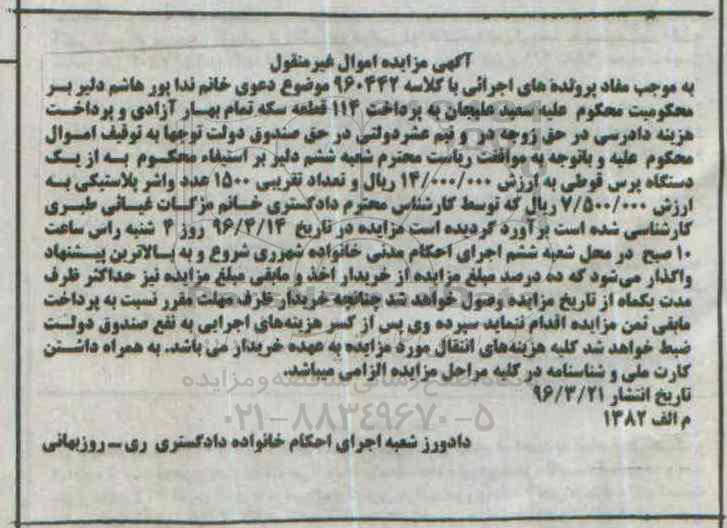 آگهی مزایده اموال غیرمنقول
به موجب مفاد پرونده های اجرائی با کلاسه ۹۶۰۴۴۲ موضوع دعوی خانم ندا پور هاشم دلیر بر
محکومیت محکوم علیه سعید علیجان به پرداخت ۱۱۴ قطعه سکه تمام بهار آزادی و پرداخت
هزینه دادرسی در حق زوجه در و نیم عشردولتی در حق صندوق دولت توجها به توقیف اموال
محکوم علیه و باتوجه به موافقت ریاست محترم شعبه ششم دلیر بر استیفاء محکوم به از یک
دستگاه پرس قوطی به ارزش ۱۴/۰۰۰/۰۰۰ ریال و تعداد تقریبی ۱۵۰۰ عدد واشر پلاستیکی به
ارزش ۷/۵۰۰/۰۰۰ ریال که توسط کارشناس محترم دادگستری خانم مژگان غیاثی طبری
کارشناسی شده است برآورد گردیده است مزایده در تاریخ ۹۶/۴/۱۴ روز ۴ شنبه راس ساعت
۱۰ صبح در محل شعبه ششم اجرای احکام مدنی خانواده شهرری شروع و به بالاترین پیشنهاد
واگذار می‌شود که ده درصد مبلغ مزایده از خریدار اخذ و مابقی مبلغ مزایده نیز حداکثر ظرف
مدت یکماه از تاریخ مزایده وصول خواهد شد چنانچه خریدار ظرف مهلت مقرر نسبت به پرداخت
مابقی ثمن مزایده اقدام ننماید سپرده وی پس از کسر هزینه‌های اجرایی به نفع صندوق دولت
ضبط خواهد شد کلیه هزینه‌های انتقال مورد مزایده به عهده خریدار می باشد. به همراه داشتن
کارت ملی و شناسنامه در کلیه مراحل مزایده الزامی میباشد.
تاریخ انتشار ۹۶/۳/۲۱
م الف ۱۳۸۲
۰۲۱-۸۸۳۴۹۶۷۰-۵
دادورز شعبه اجرای احکام خانواده دادگستری ری ــ روزبهانی